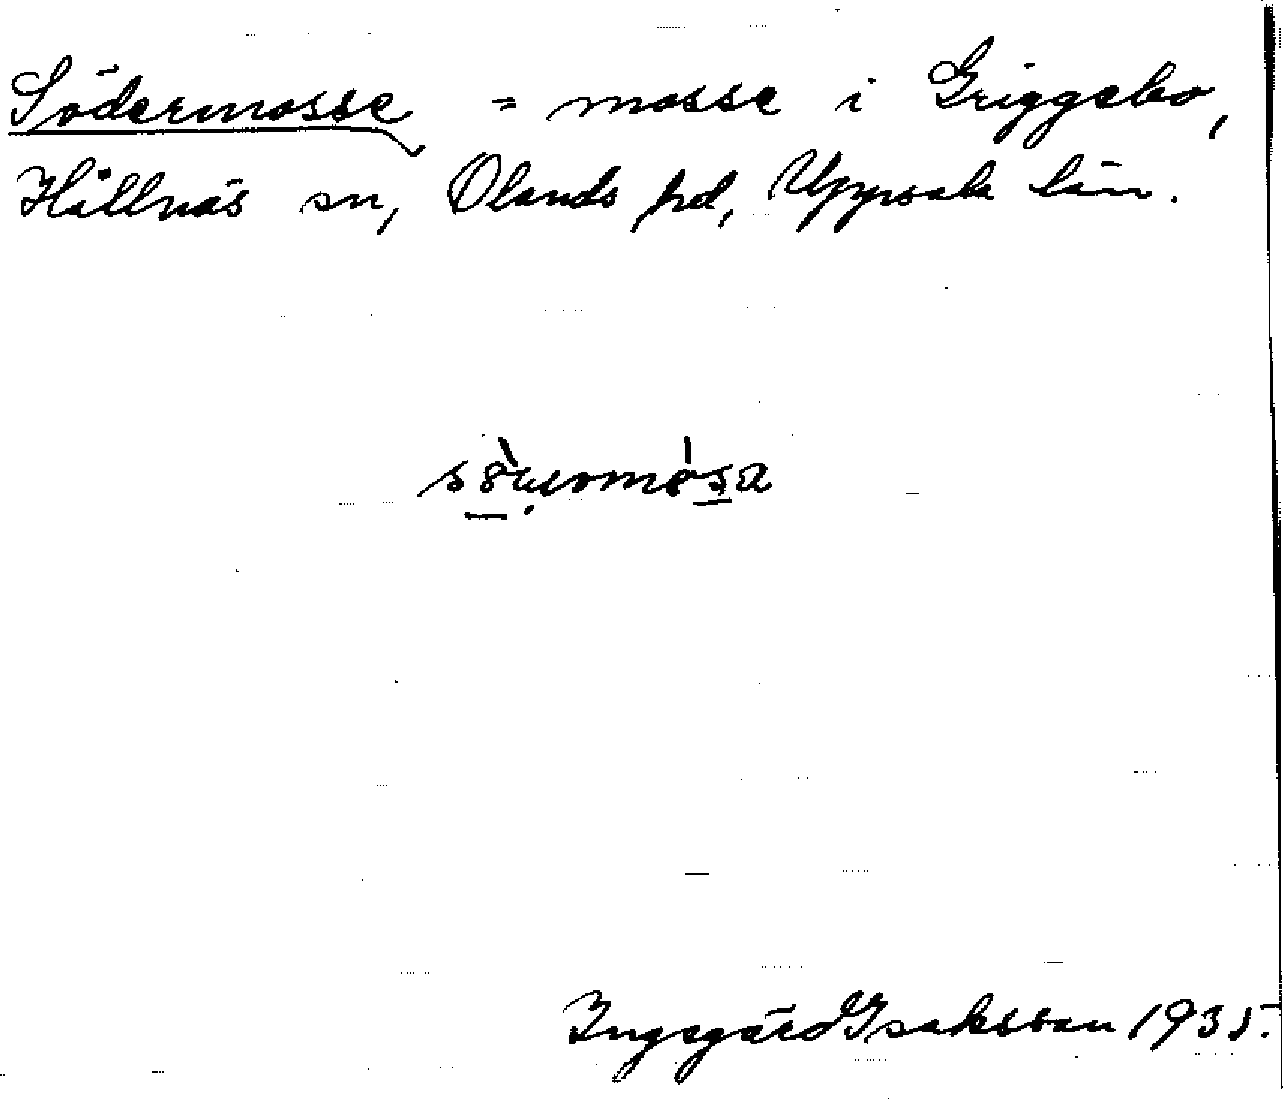 Södermosse = mosse i Griggebo,
Hållnäs sn, Olands hd, Uppsala län.
Ingegärd Isaksson 1935.